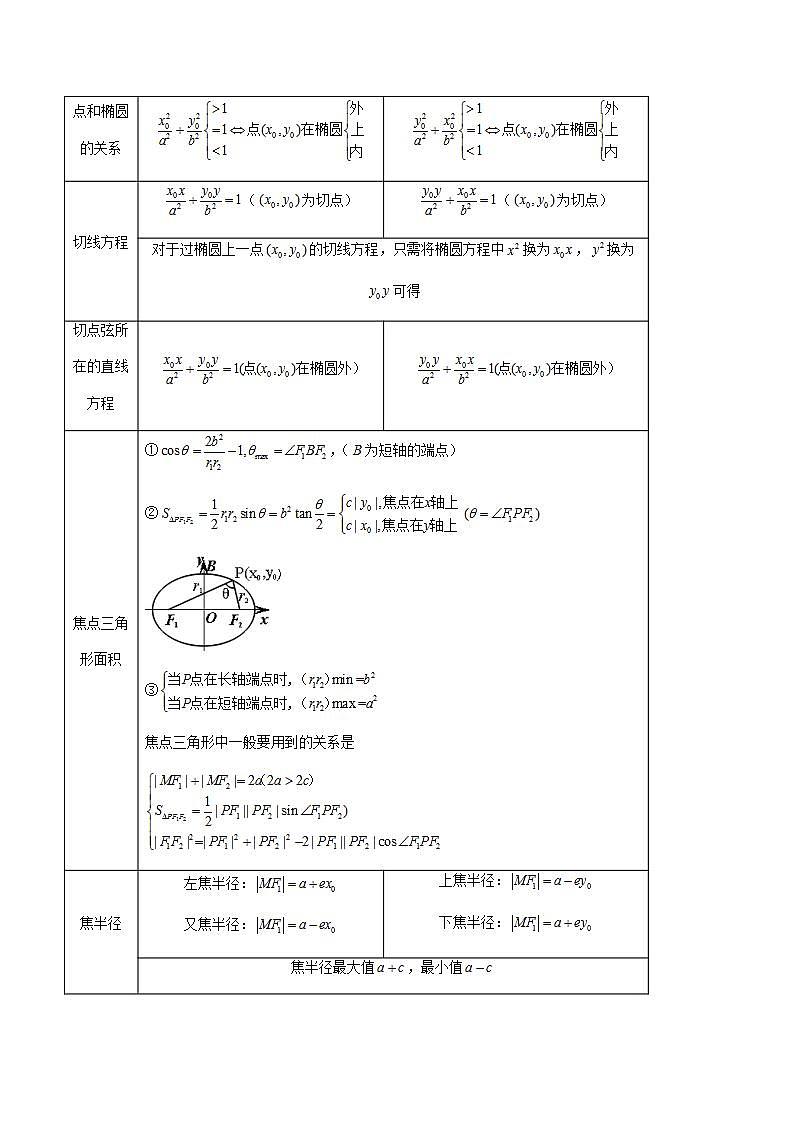 点和椭圆
的关系
x₀²/a² + y₀²/b² {>1 =1 <1 ⇔点(x₀, y₀)在椭圆{外 上 内
y₀²/a² + x₀²/b² {>1 =1 <1 ⇔点(x₀, y₀)在椭圆{外 上 内
切线方程
x₀x/a² + y₀y/b² = 1 ( (x₀, y₀)为切点)
y₀y/a² + x₀x/b² = 1 ( (x₀, y₀)为切点)
对于过椭圆上一点 (x₀, y₀) 的切线方程，只需将椭圆方程中 x² 换为 x₀x ， y² 换为
y₀y 可得
切点弦所
在的直线
方程
x₀x/a² + y₀y/b² = 1(点(x₀, y₀)在椭圆外)
y₀y/a² + x₀x/b² = 1(点(x₀, y₀)在椭圆外)
焦点三角
形面积
①cosθ = 2b²/r₁r₂ −1, θmax = ∠F₁BF₂ ，( B 为短轴的端点)
②S△PF₁F₂ = 1/2 r₁r₂ sinθ = b² tan θ/2 = {c | y₀ |,焦点在x轴上 c | x₀ |,焦点在y轴上 (θ = ∠F₁PF₂)
y B
P(x₀,y₀)
r₁ θ r₂
F₁ O F₂ x
③{当P点在长轴端点时，(r₁r₂)min =b²
当P点在短轴端点时，(r₁r₂)max =a²
焦点三角形中一般要用到的关系是
{| MF₁ | + | MF₂ |= 2a(2a > 2c)
S△PF₁F₂ = 1/2 | PF₁ || PF₂ | sin ∠F₁PF₂)
| F₁F₂ |²=| PF₁ |² + | PF₂ |² −2 | PF₁ || PF₂ | cos ∠F₁PF₂
焦半径
左焦半径：|MF₁| = a + ex₀
又焦半径：|MF₁| = a − ex₀
上焦半径：|MF₁| = a − ey₀
下焦半径：|MF₁| = a + ey₀
焦半径最大值 a + c ，最小值 a − c